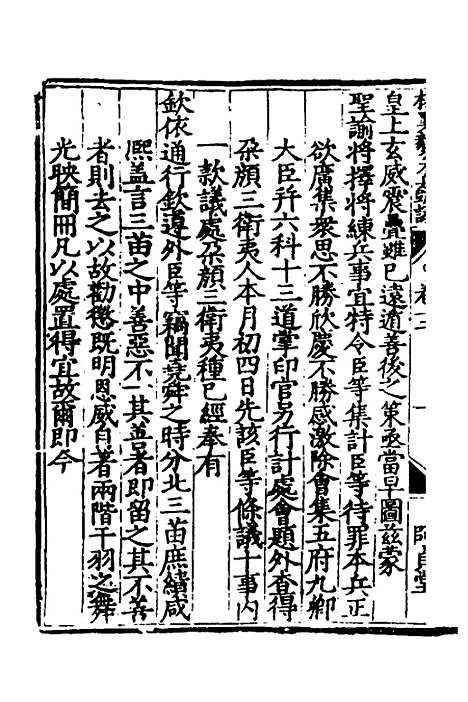 皇上玄威震疊雖已遠遁善後之策亟當早圖茲蒙
聖諭將擇將練兵事宜特令臣等集計臣等待罪本兵正
欲廣集衆思不勝欣慶不勝感激除會集五府九卿
大臣幷六科十三道掌印官另行計處會題外查得
朶顔三衛夷人本月初四日先該臣等條議十事內
一款議處朶顔三衛夷種已經奉有
欽依通行欽遵外臣等竊聞堯舜之時分北三苗庶績咸
熈盖言三苗之中善惡不一其善者即留之其不善
者則去之以故勸懲既明恩威自著兩階干羽之舞
光映簡冊凡以處置得宜故爾即今
卷十三